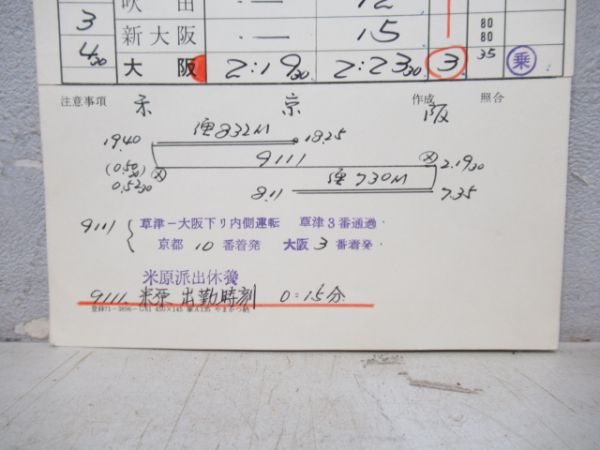 吹田 12
3 新大阪 15 80 80
4 30 大阪 2:19 30 2:23 30 3 35 乗
注意事項 米 京 作成 阪 照合
19.40 便832M 18.25
(0.50 30) 0.52 30 9111 2.19 30
8.11 便730M 7.35
9111 草津-大阪下り内側運転 草津3番通過・
京都 10 番着発 大阪 3 番着発・
米原派出休養
9111. 米原 出勤時刻 0:15分